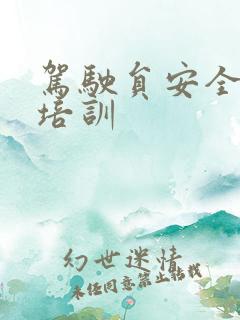 駕駛員安全
培訓
幻世迷情
未經同意禁止轉載